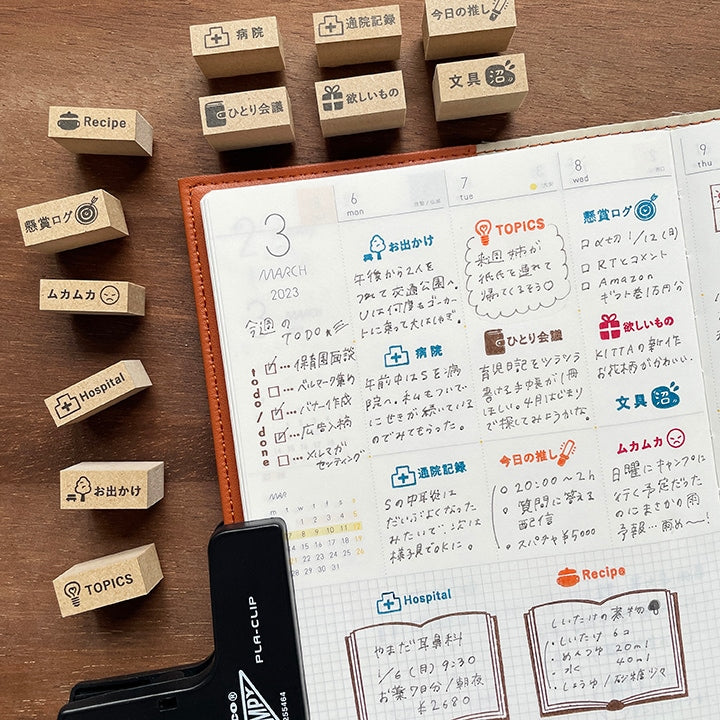 病院
通院記録
今日の推し
ひとり会議
欲しいもの
文具沼
Recipe
懸賞ログ
ムカムカ
Hospital
お出かけ
TOPICS
3
MARCH
2023
今週の
TODO
todo/done
保育園面談
ベルマーク集め
バナー作成
広告入稿
メルマガ
センディング
MAR
6
mon
お出かけ
午後から2人を
つれて交通公園へ。
Uは何度もゴーカー
トに乗って大はしゃぎ。
病院
午前中はSを病
院へ。私もついで
にせきが続いている
のでみてもらった。
通院記録
Sの中耳炎は
だいぶよくなった
みたいで、次は
様子見でOKに。
7
tue
TOPICS
来週 姉が
紙氏を連れて
帰ってくるそう♡
ひとり会議
育児日記をツラツラ
書ける手帳が1冊
ほしい。4月はじまり
で探してみようかな。
今日の推し
20:00〜2h
質問に答える
配信
スパチャ¥5000
8
wed
懸賞ログ
〆切 1/12(日)
RTとコメント
Amazon
ギフト券1万円分
欲しいもの
KITTAの新作
お花柄がかわいい。
文具沼
ムカムカ
日曜にキャンプに
行く予定だった
のにまさかの雨
予報…
9
thu
Hospital
やまだ耳鼻科
1/6(月) 9:30
お薬7日分/朝夜
¥2680
Recipe
しいたけの煮物
しいたけ 6コ
めんつゆ 20ml
水 40ml
しょうゆ/砂糖少々
PLA-CLIP
255464